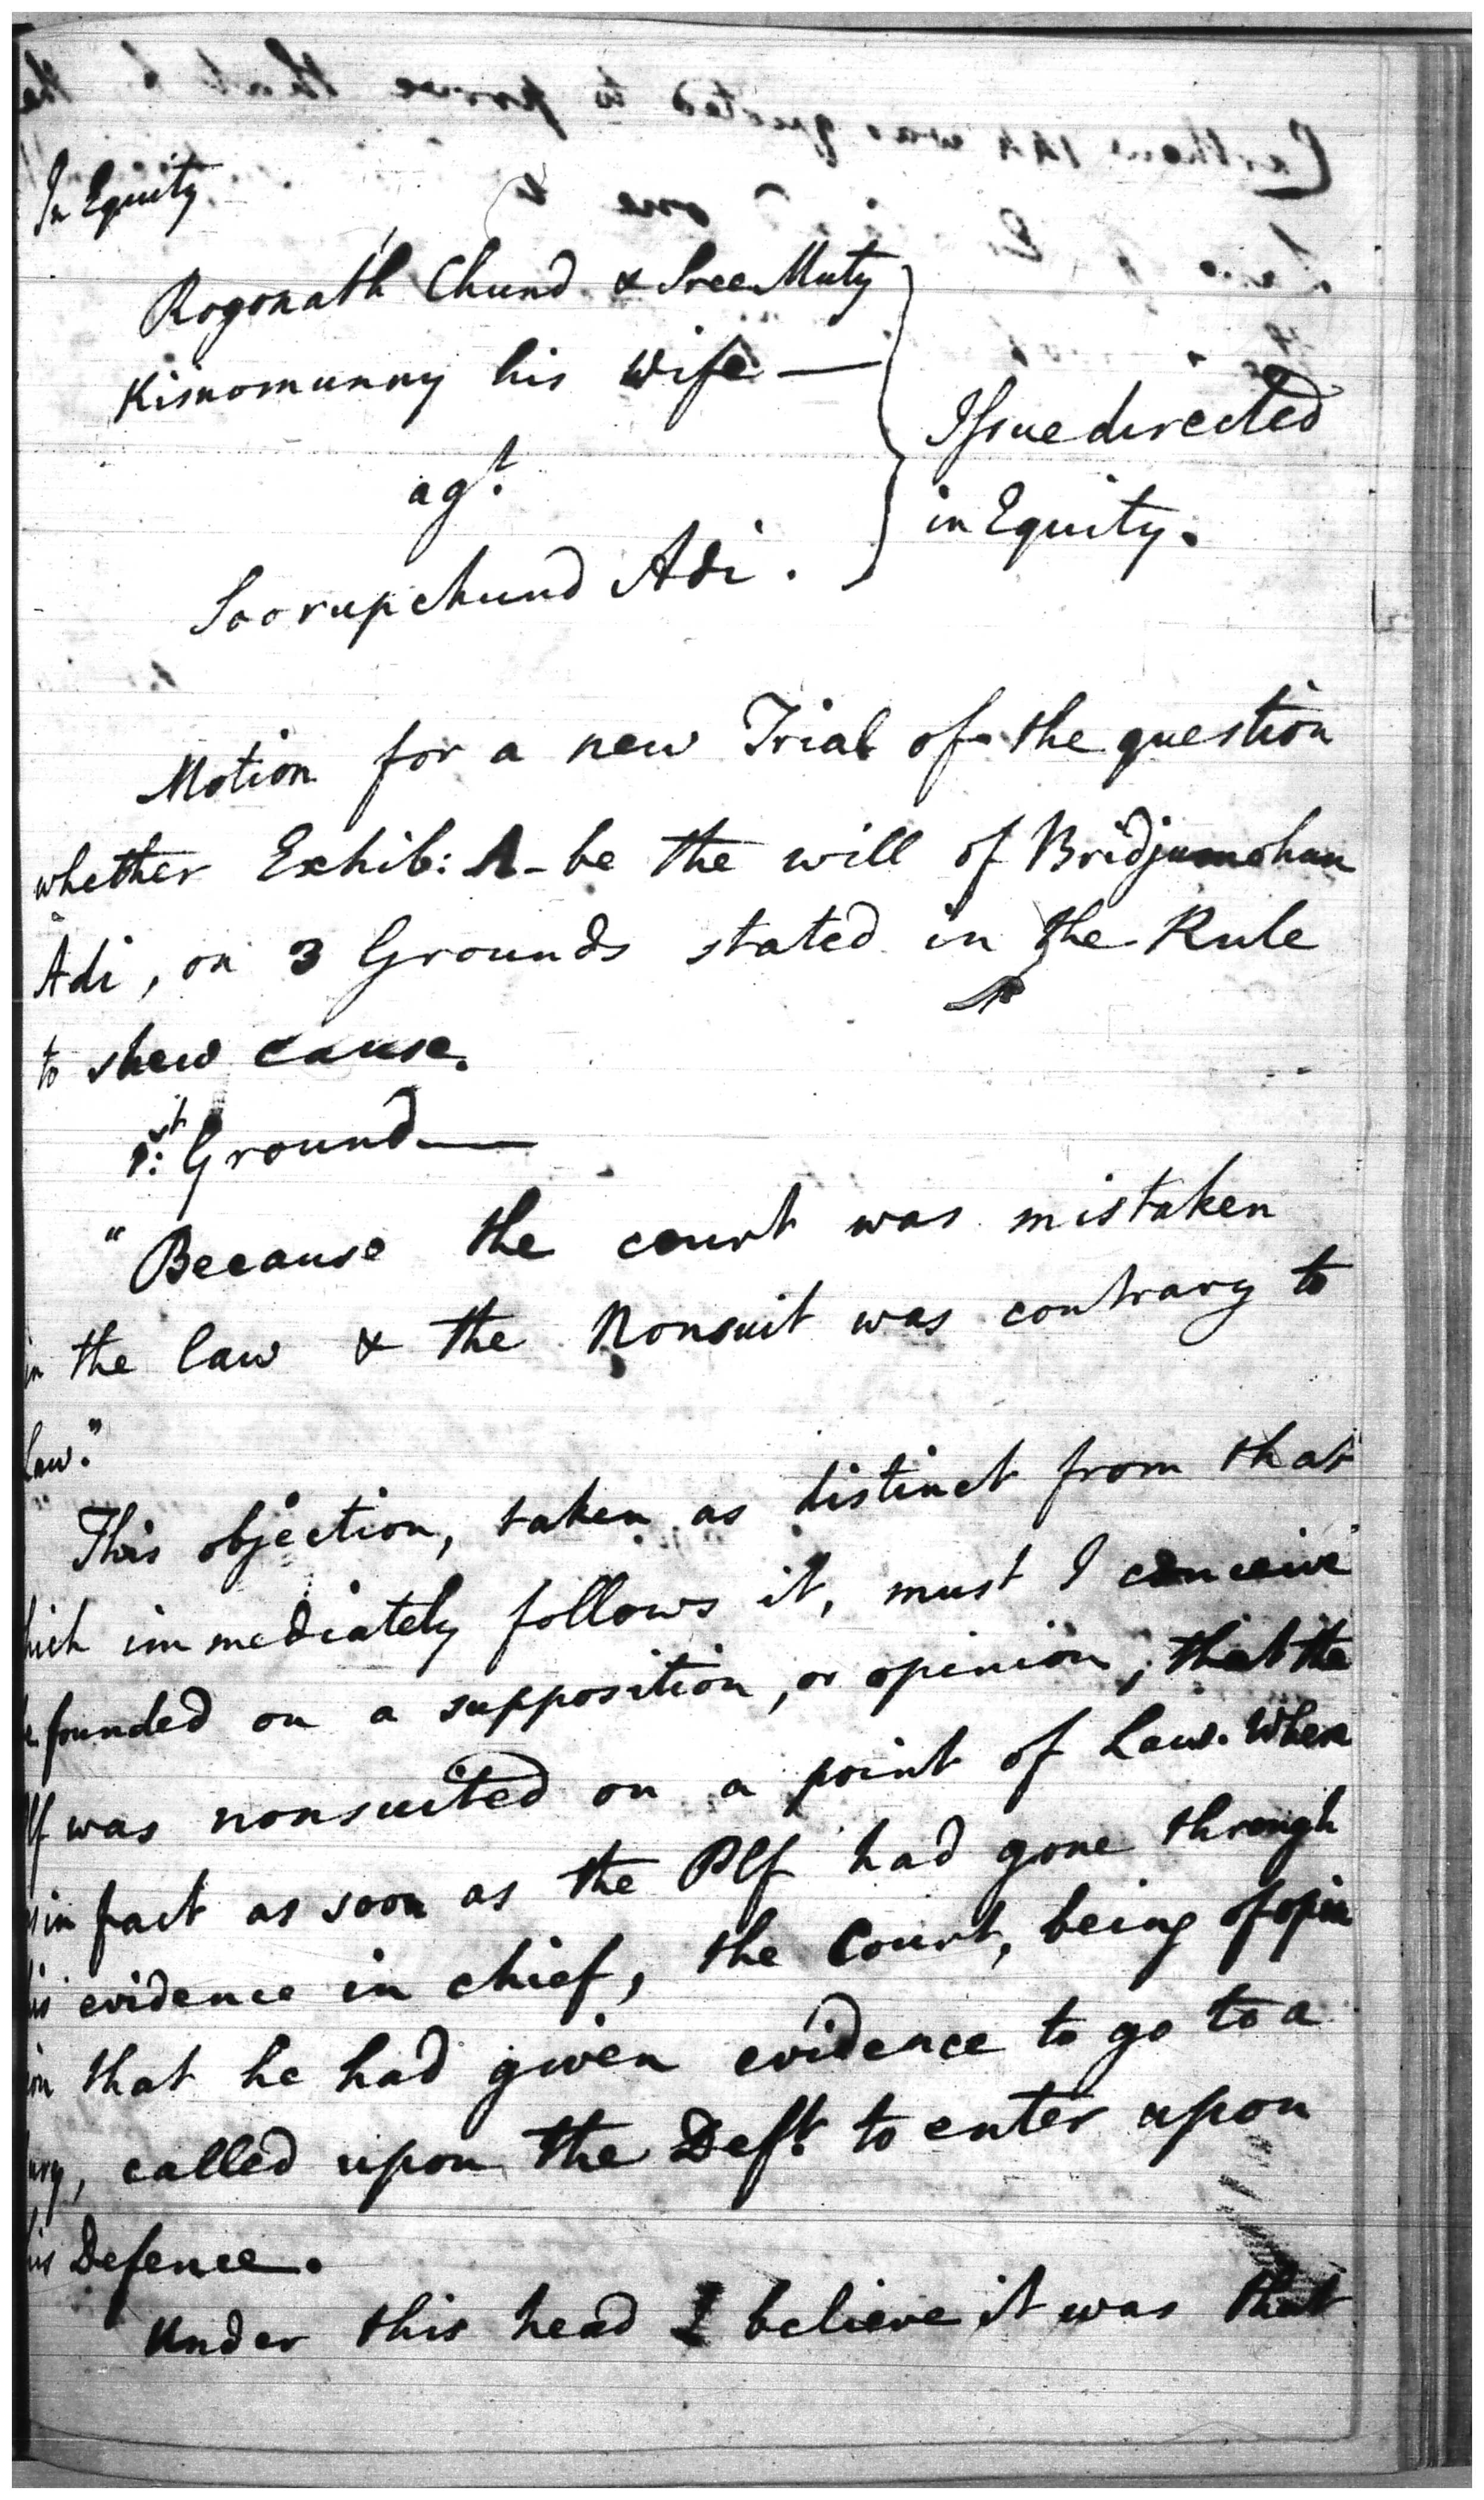 In Equity
Rogonath Chund & Sree Muty
Kisnomunny his Wife —
agt.
Soorupchund Adi.
Issue directed
in Equity.
Motion for a new Trial of the question
whether Exhib: A - be the will of Bridjumohun
Adi, on 3 Grounds stated in the Rule
to shew cause.
1st: Ground —
"Because the court was mistaken
in the law & the Nonsuit was contrary to
Law."
This objection, taken as distinct from that
hich immediately follows it, must I conceive
founded on a supposition, or opinion, that the
lf was nonsuited on a point of Law. When
in fact as soon as the Plf had gone through
his evidence in chief, the Court, being of opin
ion that he had given evidence to go to a
ury, called upon the Deft. to enter upon
his Defence.
Under this head I believe it was that